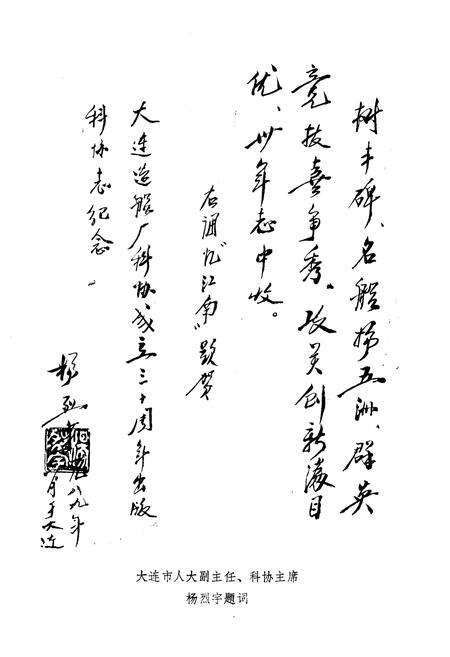 树丰碑、名船扬五洲、群英
竞技喜争秀。攻关创新目
优、卅年志中收。
右调忆“江南”题贺
大连造船厂科协成立三十周年出版
科协志纪念。
杨烈
八九年
月于大连
大连市人大副主任、科协主席
杨烈宇题词